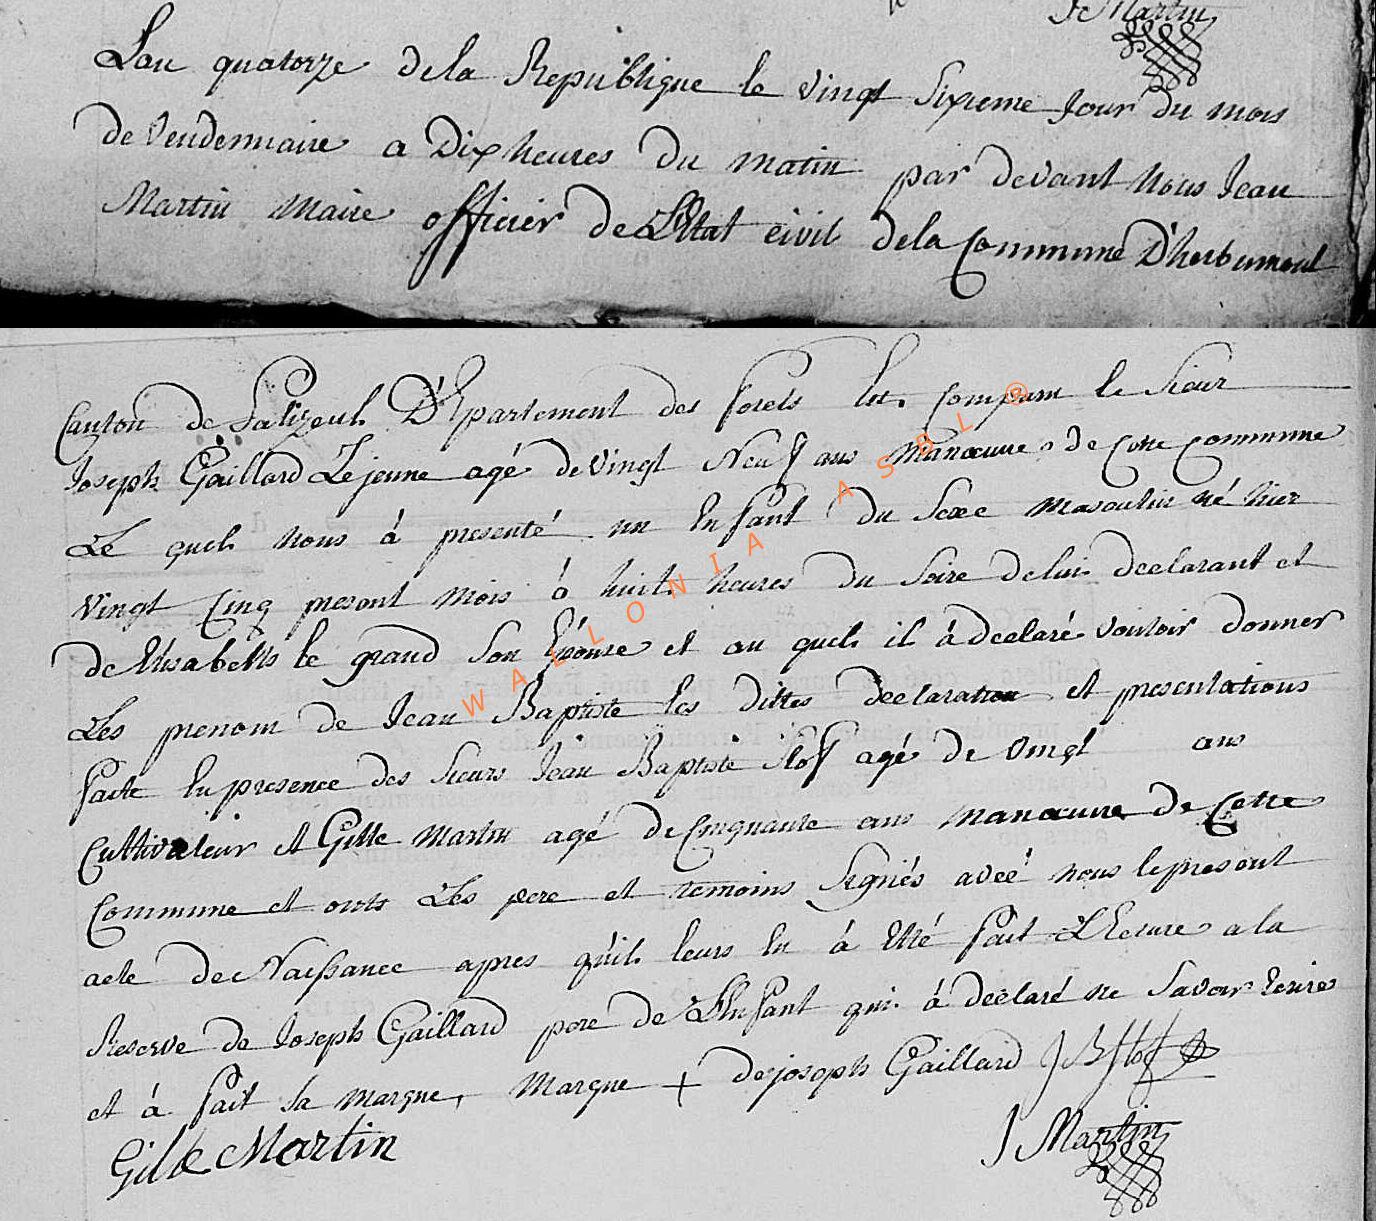 J Martin
Lan quatorze dela Republique le vingt sixieme Jour du mois
de Vendemiaire a Dix heures du matin par devant Nous Jean
Martin Maire officier de LEtat civil dela Commune D'herbumont
Canton de Palizeul DEpartement des forets Est Comparu le Sieur
Joseph Gaillard Le jeune agé de Vingt Neuf ans Manœuvre de Cette Commune
Le quel nous à presenté un Enfant du Sexe Masculin né hier
Vingt Cinq present mois à huit heures du Soire delui declarant et
de Elisabeth le grand Son Epouse et au quel il à declaré vouloir donner
Les prenom de Jean Baptiste les dittes declaration et presentations
faite En presence des Sieurs Jean Baptiste Slof agé de vingt ans
Cultivateur et Gille Martin agé de Cinquante ans Manœuvre de Cette
Commune et onts Les pere et temoins Signés aveé nous le present
acte de Naissance apres qu'il leurs En à Etté fait LEcture a la
Reserve de Joseph Gaillard pere de LEnfant qui à declaré ne Savoir Ecrire
et à fait sa marque, Marque + de joseph Gaillard J B Slof
Gille Martin J Martin
WALLONIA ASBL ®